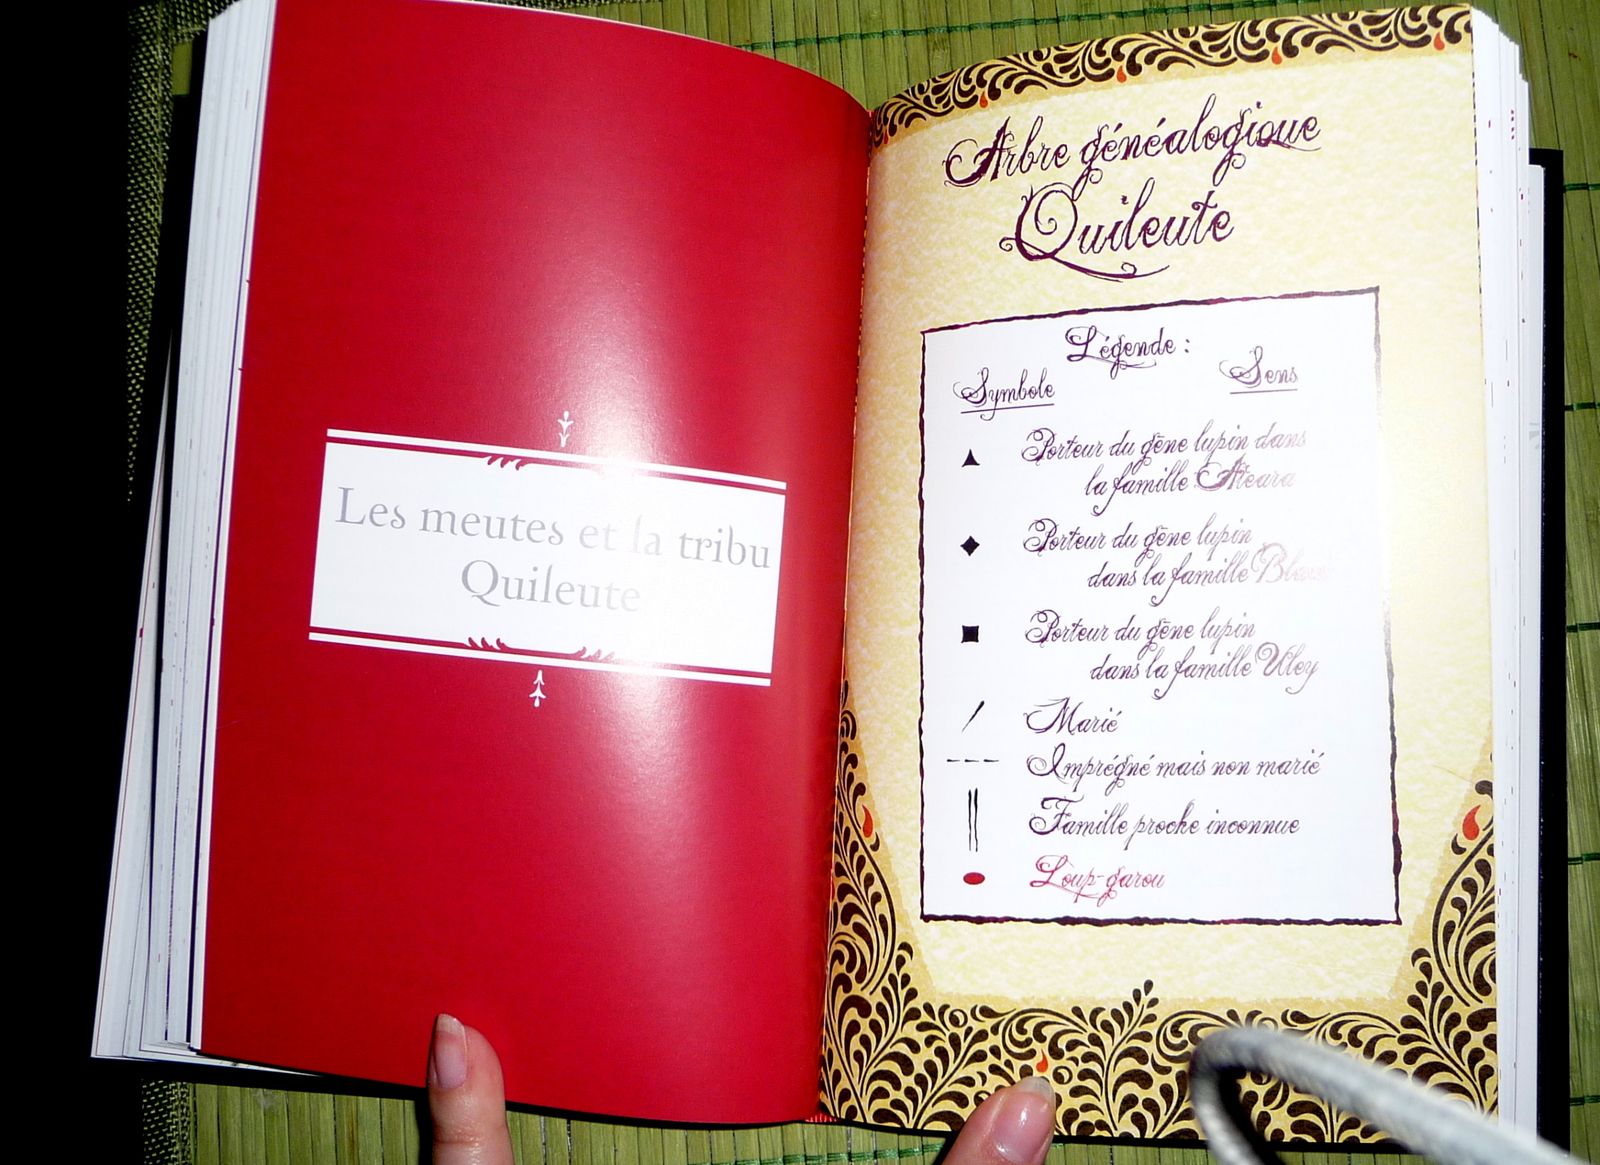 Les meutes et la tribu
Quileute
Arbre généalogique
Quileute
Légende :
Symbole
Sens
Porteur du gène lupin dans
la famille Ateara
Porteur du gène lupin
dans la famille Black
Porteur du gène lupin
dans la famille Uley
Marié
Imprégné mais non marié
Famille proche inconnue
Loup-garou